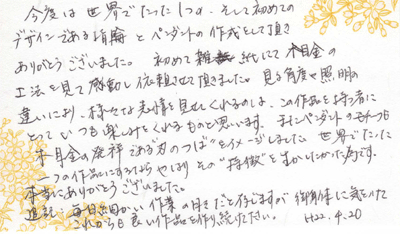 今度は世界でたった1つの、そして初めての
デザインである指輪とペンダントの作成をして頂き
ありがとうございました。初めて雑紙にて木目金の
工法を見て感動し依頼させて頂きました。見る角度や照明の
違いにより、様々な表情を見せてくれるのは、この作品を持つ者に
とっていつも楽しみをくれるものと思います。またペンダントの
木目金の発祥である刀の"つば"をイメージしました。世界でたった
一つの作品にするなら やはりその"特徴"を生かしたかった為です。
本当にありがとうございました。
追記：毎日細かい作業の日々だと存じますが御身体に気をつけて
これからも良い作品を作り続けて下さい。 H22.4.20